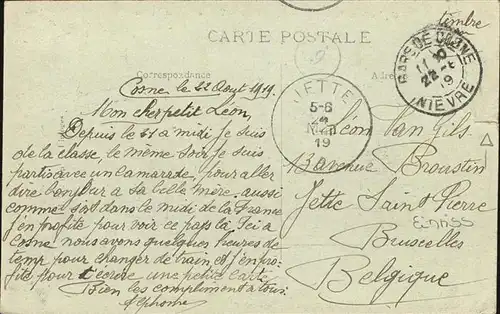 timbre
CARTE POSTALE
Correspondance
GARE DE COSNE
NIÈVRE
JETTE
5-6
19
Cosne le 22 Aout 1919.
Mon cher petit Léon,
Depuis le 21 a midi je suis
de la classe le même soir je suis
parti avec un camarade, pour aller
dire bonjour a sa belle mère, aussi
comme sort dans le midi de la France
j'en profite pour voir ce pays là Ici a
Cosne nous avons quelques heures de
temp pour changer de train et j'en pro-
fite pour t'ecrire une petite carte
Bien les compliment a tous.
Alphonse
Léon Van Gils.
avenue Broustin
Jette Saint Pierre
Einriss
Bruxelles
Belgique